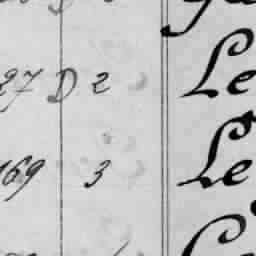 27 D 2 Le
169 3 Le